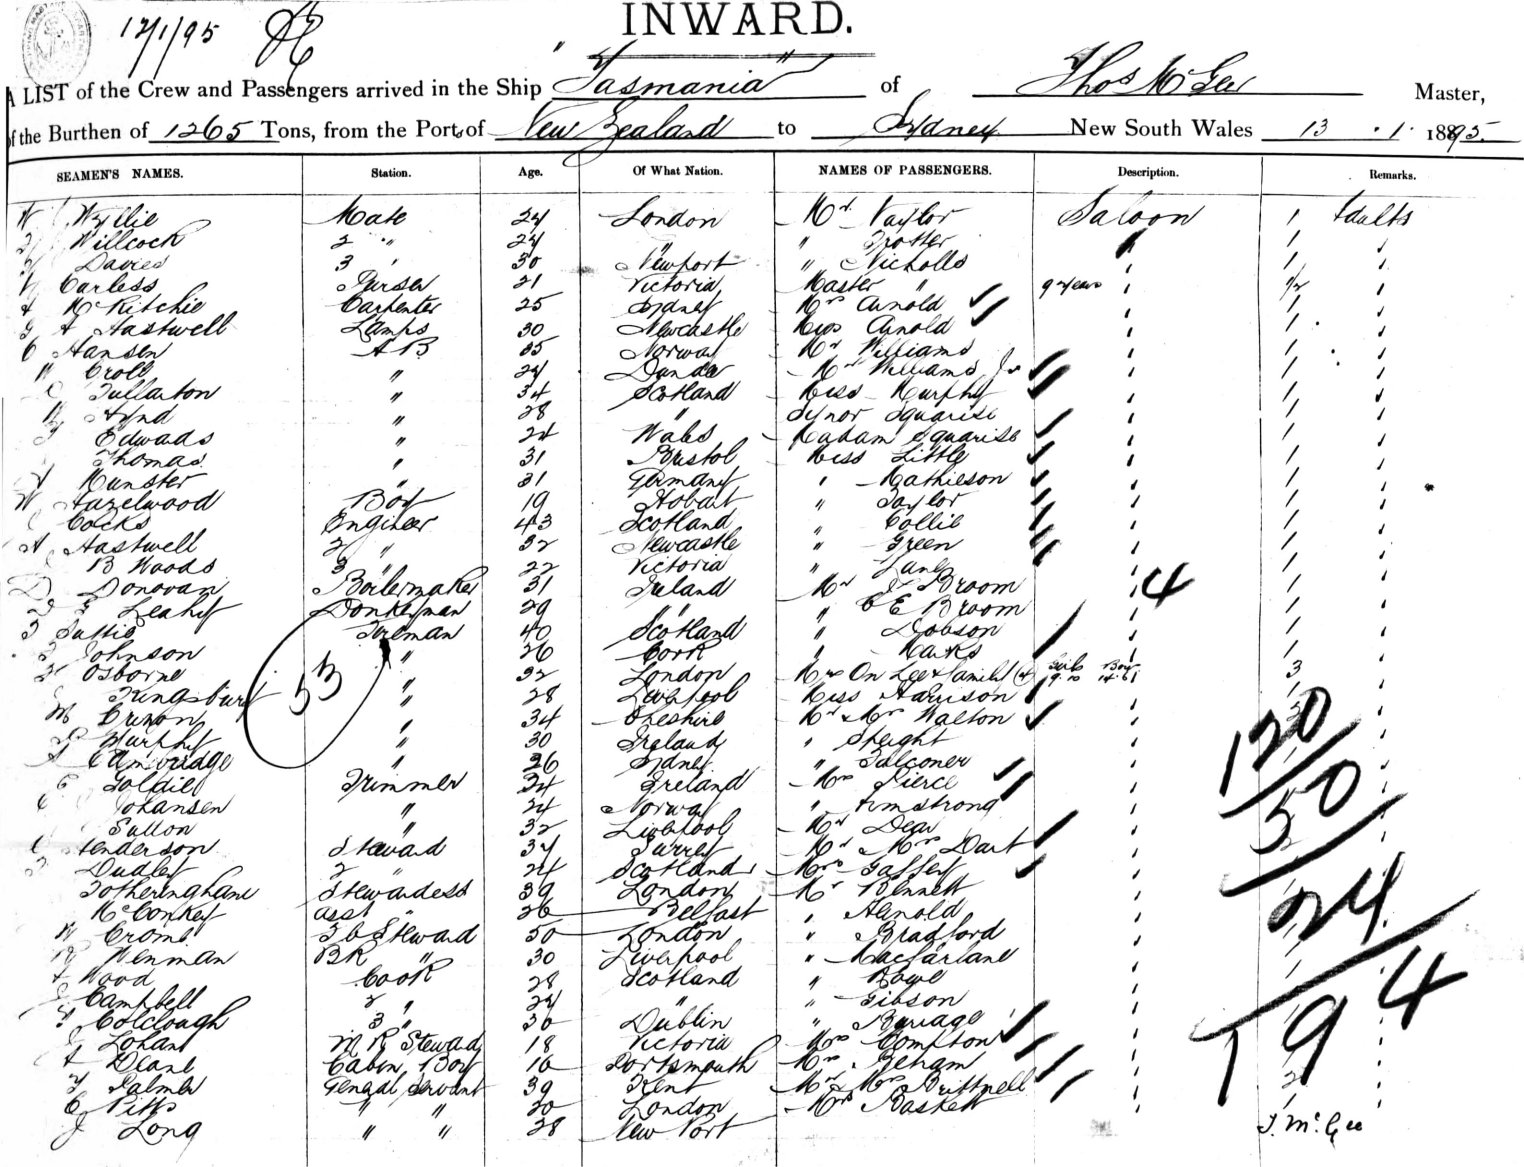 12/1/95
INWARD.
A LIST of the Crew and Passengers arrived in the Ship "Tasmania" of Thos McGee Master,
of the Burthen of 1265 Tons, from the Port of New Zealand to Sydney New South Wales 13 . 1 . 1895.
SEAMEN'S NAMES. Station. Age. Of What Nation. NAMES OF PASSENGERS. Description. Remarks.
W Wyllie Mate 24 London Mr Naylor Saloon 1 Adults
Willcock 2 " 24 " " Trotter 1
Davies 3 " 30 Newport " Nicholls 1
Carless Purser 21 Victoria Master " 9 years 1/2
McRitchie Carpenter 25 Sydney Mrs Arnold 1
A Hastwell Lamps 30 Newcastle Miss Arnold 1
C Hansen AB 35 Norway Mr Williams 1
Croll " 24 Dundee Mr Williams Jr 1
Fullarton " 34 Scotland Miss Murphy 1
Hynd " 28 " Squarise 1
Edwards " 24 Wales Madam Squarise 1
Thomas " 31 Bristol Miss Little 1
Munster " 31 Germany " Mathieson 1
W Hazelwood Boy 19 Hobart " Taylor 1
Cocks Engineer 43 Scotland " Collie 1
A Hastwell 2 " 32 Newcastle " Green 1
B Woods 3 " 22 Victoria " Lane 1
D Donovan Boilermaker 31 Ireland Mr J Broom 4 1
Leahy Donkeyman 29 " " C E Broom 1
Suttie Fireman 40 Scotland " Dobson 1
Johnson " 26 Cork " Marks 1
Osborne " 32 London Mrs On Lee & Family (4) 3
Kingsbury 53 " 28 Liverpool Miss Harrison 1
" 34 Cheshire Mr & Mrs Walton 120
Murphy " 30 Ireland " Speight
Cambridge " 26 Sydney " Falconer
Goldie Trimmer 24 Ireland Mrs Pierce 50
Johansen " 24 Norway " Armstrong
Sutton " 32 Liverpool Mr Dear
Henderson Steward 34 Surrey Mr Mrs Dart
Dudley 2 " 24 Scotland Mrs Gaffey
Fotheringham Stewardess 39 London Mr Bennett 24
McConkey asst " 26 Belfast " Arnold
Cromb Steward 50 London " Bradford
Wenman BR " 30 Liverpool " Macfarlane
Wood Cook 28 Scotland " Rowe
Campbell 2 " 24 " " Gibson 194
Colclough 3 " 30 Dublin " Burrage
Lohan M R Steward 18 Victoria Mrs Compton
Deane Cabin Boy 16 Portsmouth Mrs
Palmer Genral Servant 39 Kent Mr Mrs Brittnell 2
C Pitts " " 20 London Mrs Baskett
J Long " " 28 New Port
T. McGee